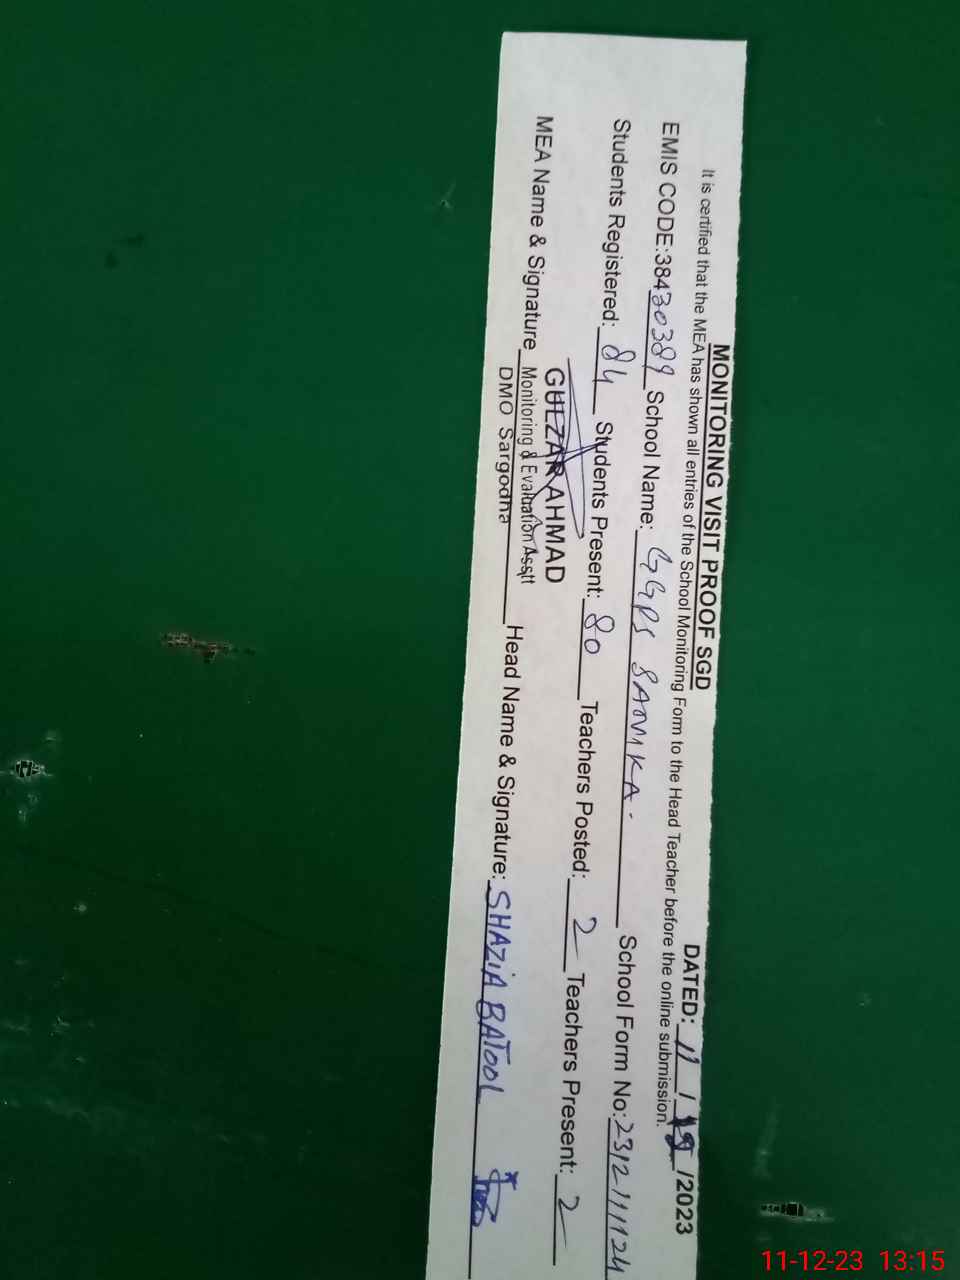 MONITORING VISIT PROOF SGD DATED: 11 / 12 /2023
It is certified that the MEA has shown all entries of the School Monitoring Form to the Head Teacher before the online submission.
EMIS CODE:38430389 School Name: GGPS SAMKA. School Form No:2312111124
Students Registered: 84 Students Present: 80 Teachers Posted: 2 Teachers Present: 2
GULZAR AHMAD
MEA Name & Signature Monitoring & Evaluation Asstt Head Name & Signature: SHAZIA BATOOL
DMO Sargodha
11-12-23 13:15